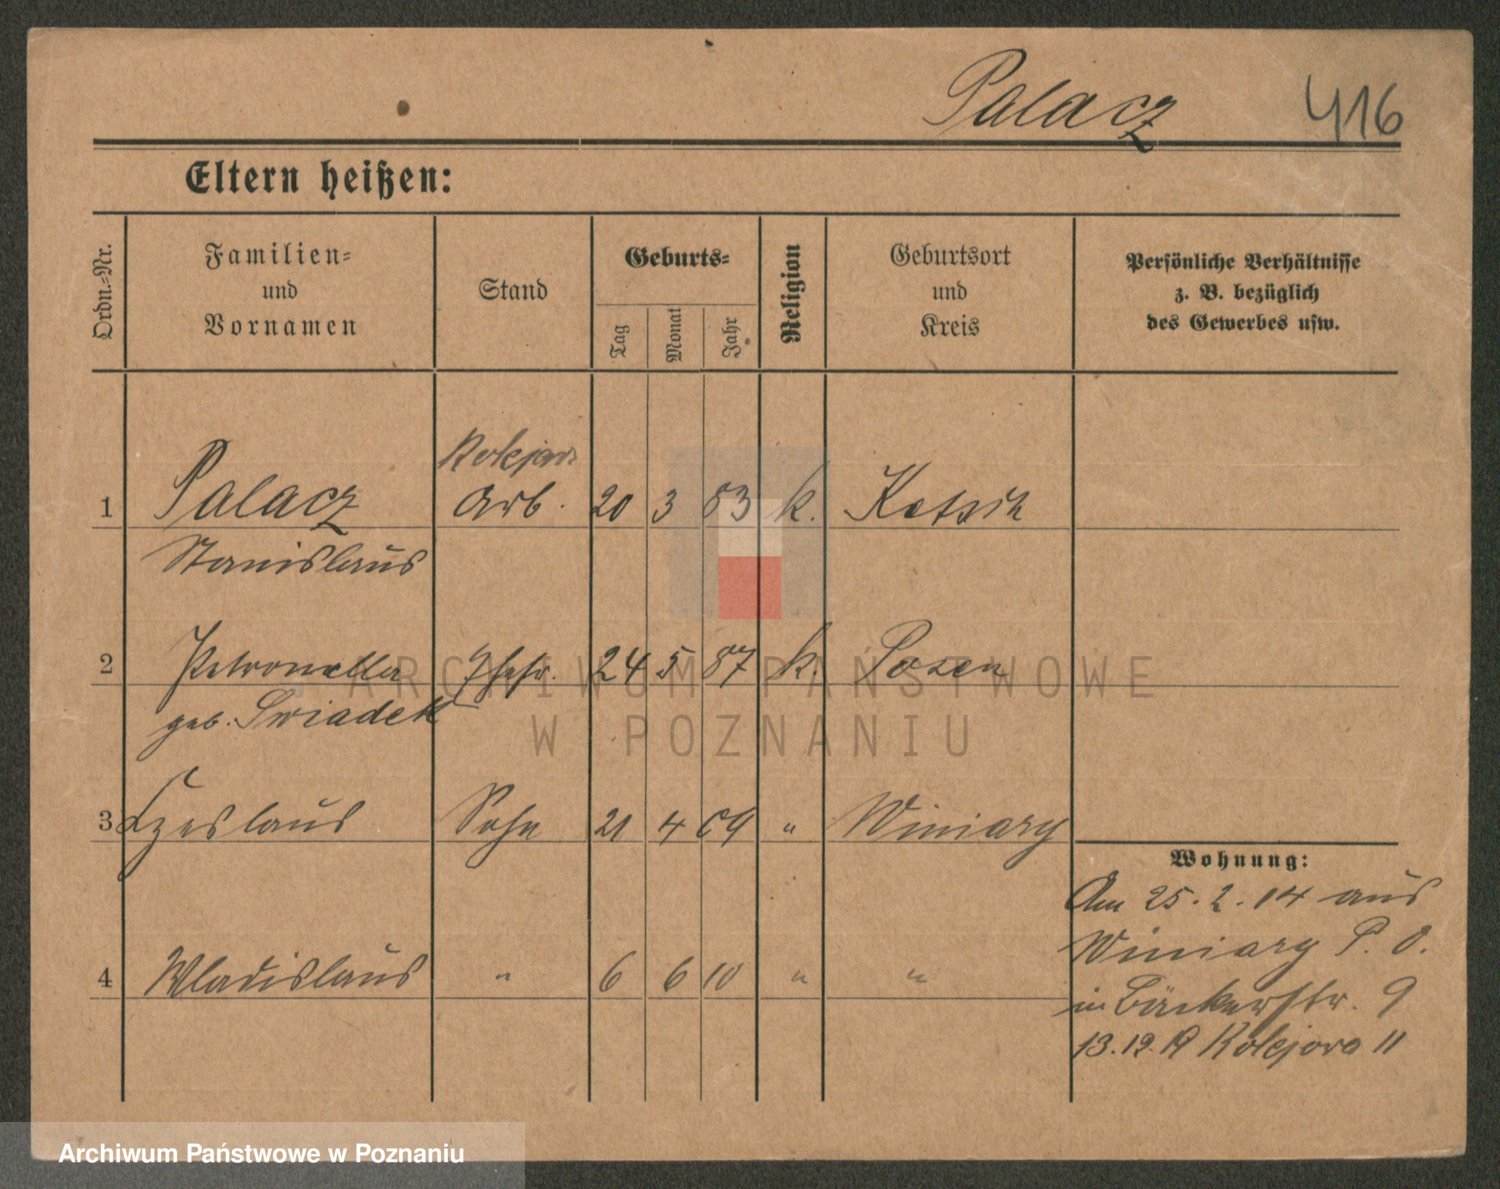 Palacz 416
Eltern heißen:
Ordn.-Nr.
Familien-
und
Vornamen
Stand
Geburts-
Tag
Monat
Jahr
Religion
Geburtsort
und
Kreis
Persönliche Verhältnisse
z. B. bezüglich
des Gewerbes usw.
1 Palacz Arb. 20 3 83 k.
Stanislaus
2 Petronella Ehefr. 24 5 87 k. Posen
geb. Swiadek
3 Czeslaus Sohn 21 4 09 " Winiary
4 Wladislaus " 6 6 10 " "
Wohnung:
Am 25.2.14 aus
Winiary P. O.
in Bäckerstr. 9
13.12.19 Kolejowa 11
ARCHIWUM PAŃSTWOWE
W POZNANIU
Archiwum Państwowe w Poznaniu